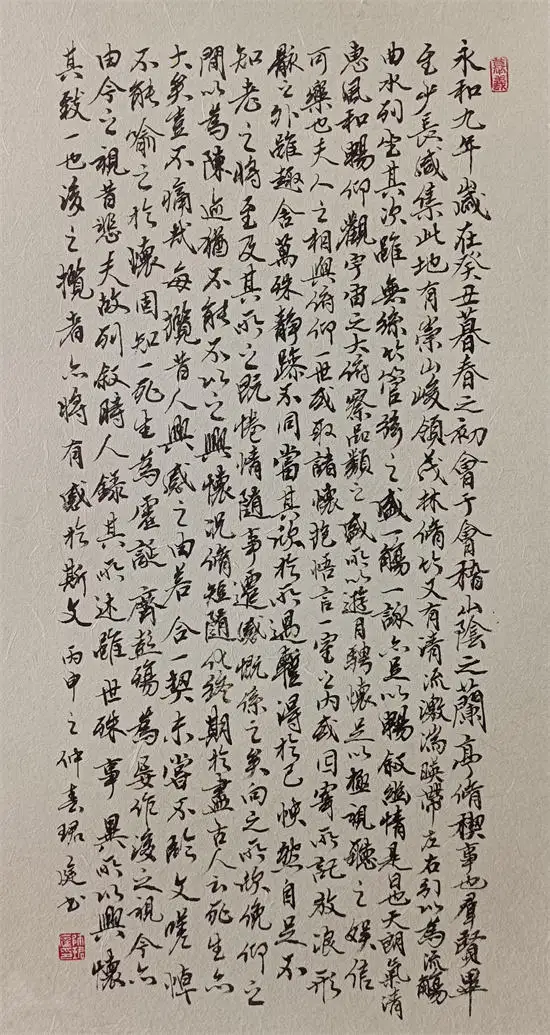 永和九年歲在癸丑暮春之初會于會稽山陰之蘭亭脩禊事也羣賢畢
至少長咸集此地有崇山峻領茂林脩竹又有清流激湍暎帶左右引以為流觴
曲水列坐其次雖無絲竹管弦之盛一觴一詠亦足以暢敘幽情是日也天朗氣清
惠風和暢仰觀宇宙之大俯察品類之盛所以遊目騁懷足以極視聽之娛信
可樂也夫人之相與俯仰一世或取諸懷抱悟言一室之內或因寄所託放浪形
骸之外雖趣舍萬殊靜躁不同當其欣於所遇暫得於己怏然自足不
知老之將至及其所之既惓情隨事遷感慨係之矣向之所欣俛仰之
間以為陳迹猶不能不以之興懷況脩短隨化終期於盡古人云死生亦
大矣豈不痛哉每攬昔人興感之由若合一契未嘗不臨文嗟悼
不能喻之於懷固知一死生為虛誕齊彭殤為妄作後之視今亦
由今之視昔悲夫故列敘時人錄其所述雖世殊事異所以興懷
其致一也後之攬者亦將有感於斯文 丙申之仲春 書